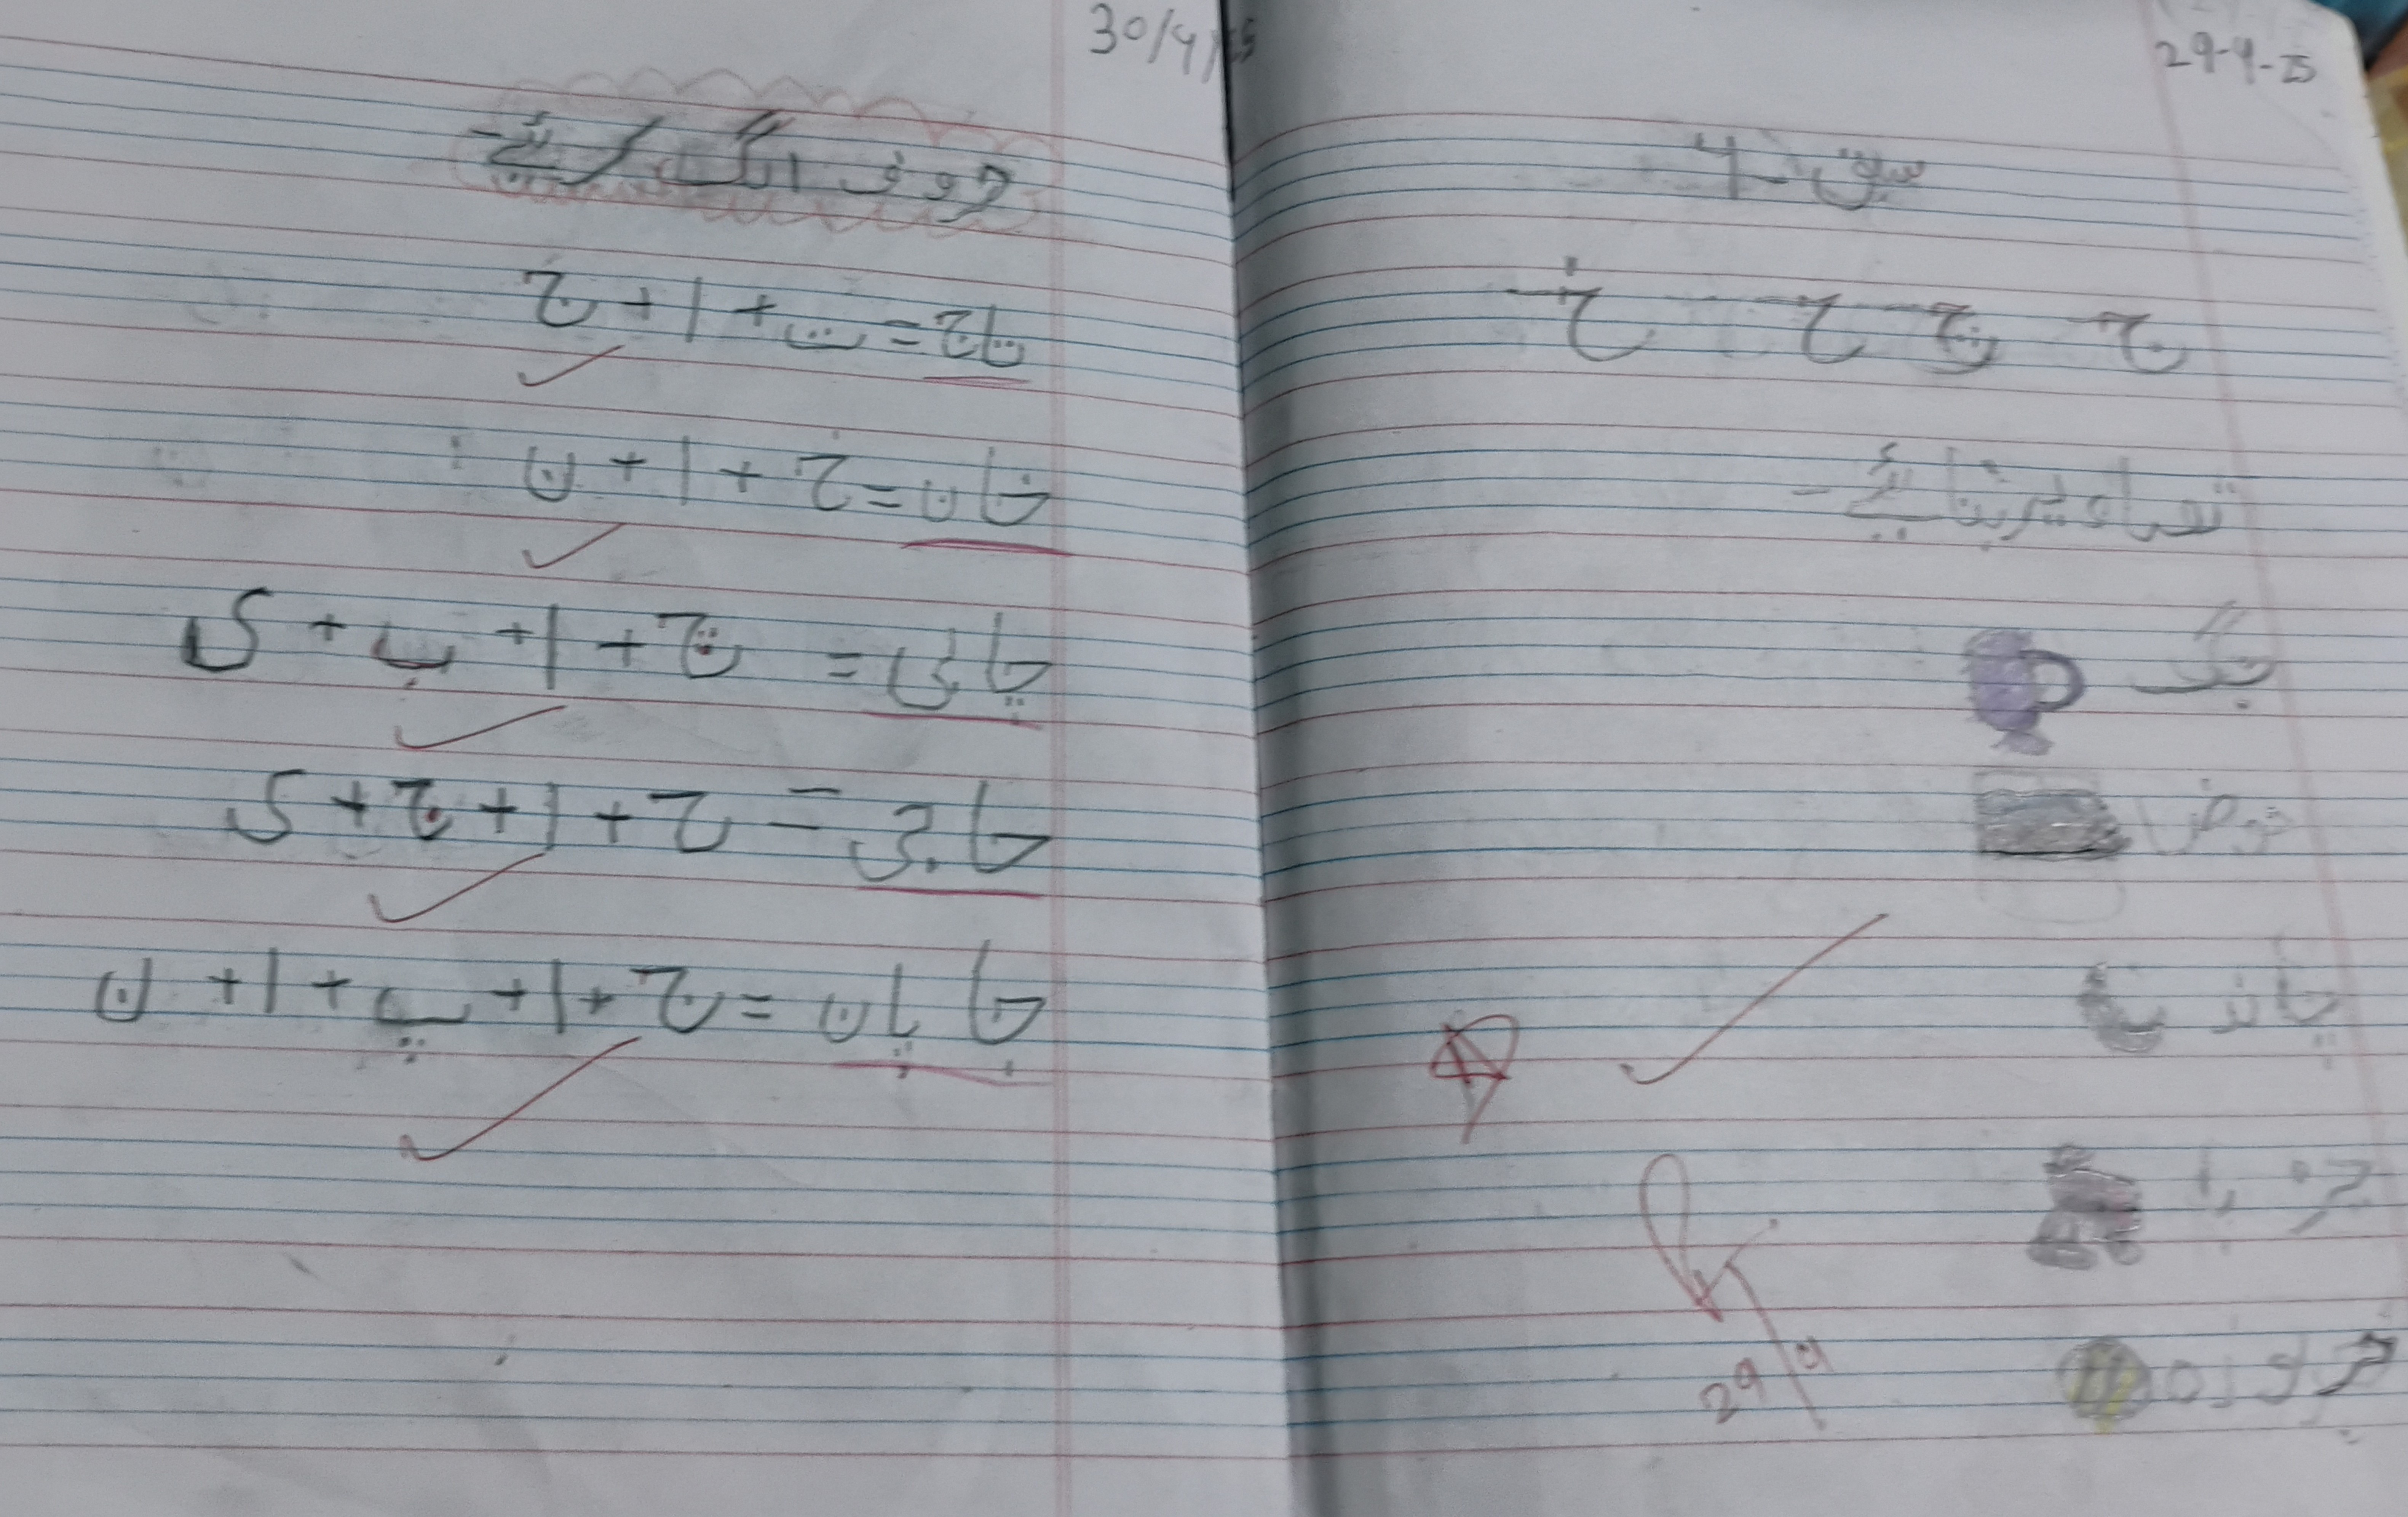 29-4-25
سبق-4
ج چ ح خ
تصاویر بنائے-
جگ
حوض
چاند
چڑیا
خربوزہ
29/4
30/4/25
حروف الگ کرئے-
تاج = ت + ا + ج
خان = خ + ا + ن
چابی = چ + ا + ب + ی
حاجی = ح + ا + ج + ی
جاپان = ج + ا + پ + ا + ن